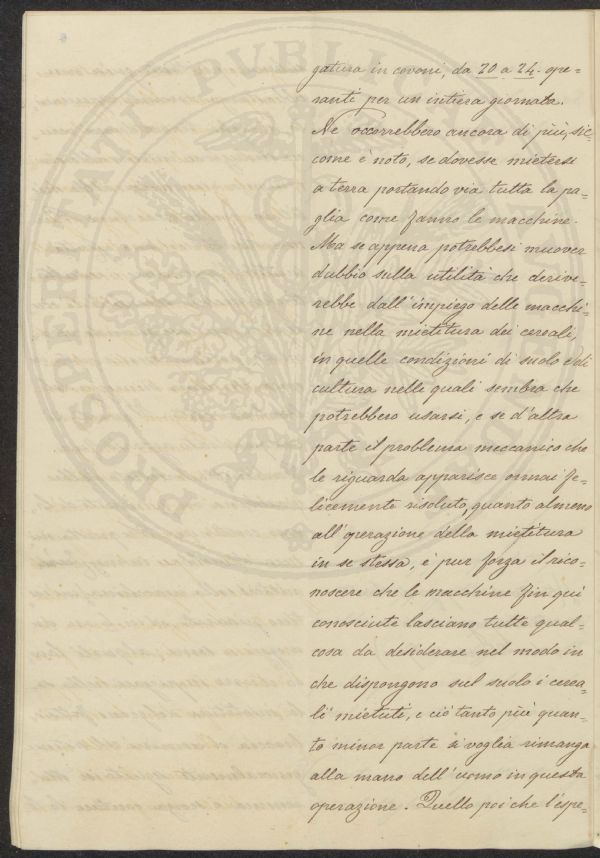 PROSPERITATI PVBLICAE
gatura in covoni, da 20 a 24 ope=
ranti per un intiera giornata.
Ne occorrebbero ancora di più, sic=
come è noto, se dovesse mietersi
a terra portando via tutta la pa=
glia come fanno le macchine.
Ma se appena potrebbesi muover
dubbio sulla utilità che derive=
rebbe dall'impiego delle macchi=
ne nella mietitura dei cereali,
in quelle condizioni di suolo e di
cultura nelle quali sembra che
potrebbero usarsi, e se d'altra
parte il problema meccanico che
le riguarda apparisce omai fe=
licemente risoluto, quanto almeno
all'operazione della mietitura
in se stessa, è pur forza il rico=
noscere che le macchine fin qui
conosciute lasciano tutte qual=
cosa da desiderare nel modo in
che dispongono sul suolo i cerea=
li mietuti, e ciò tanto più quan=
to minor parte si voglia rimanga
alla mano dell'uomo in questa
operazione. Quello poi che l'espe=